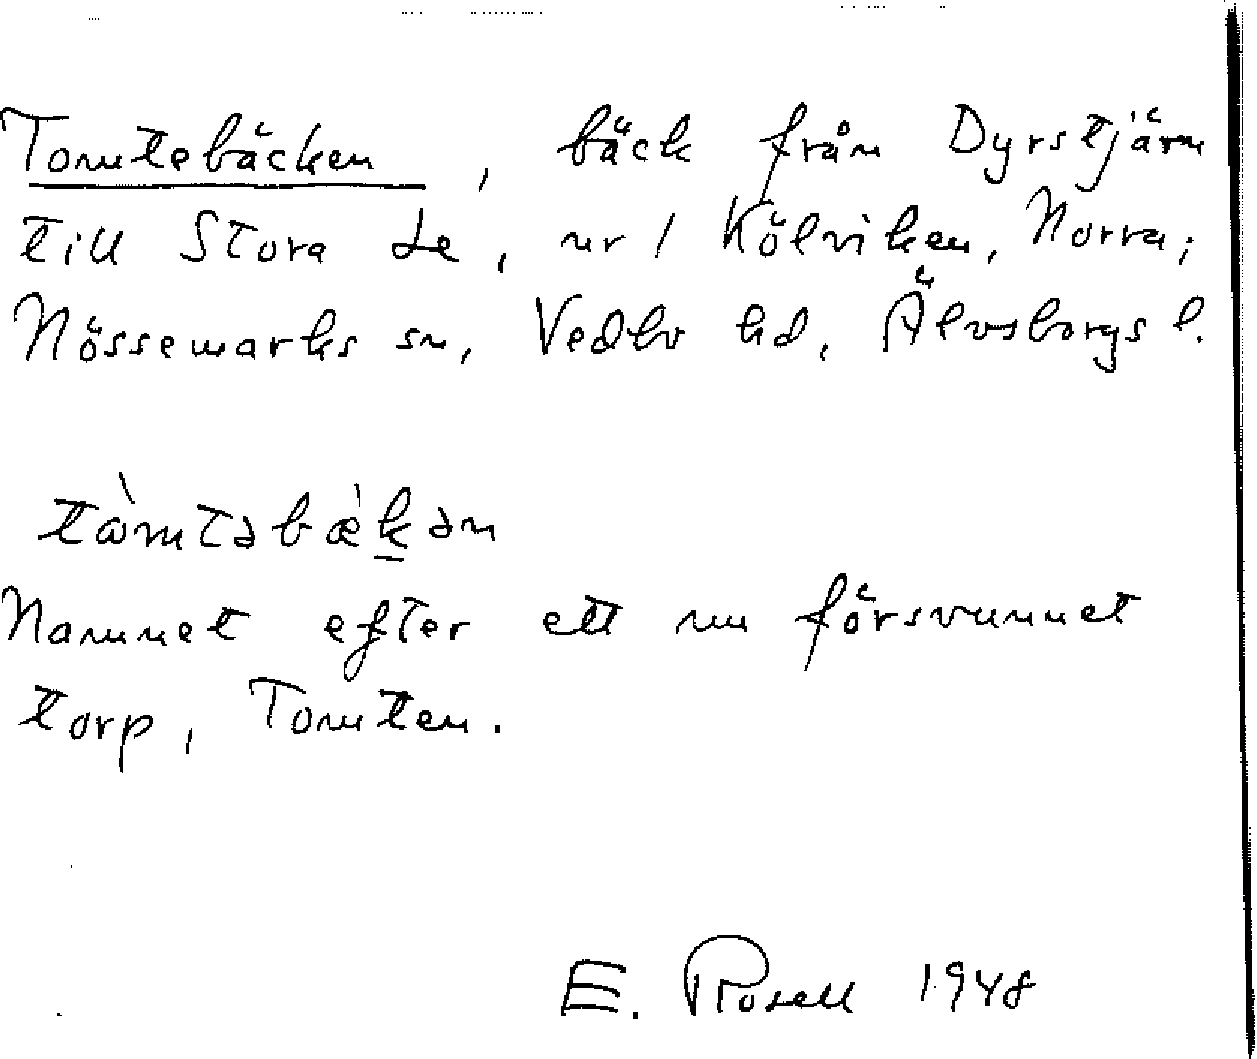 Tomtebäcken, bäck från Dyrstjärn
till Stora Le, nr 1 Kölviken, Norra;
Nössemarks sn, Vedbo hd, Älvsborgs l.
tòmtəbæ̀kən
Namnet efter ett nu försvunnet
torp, Tomten.
E. Rosell 1948